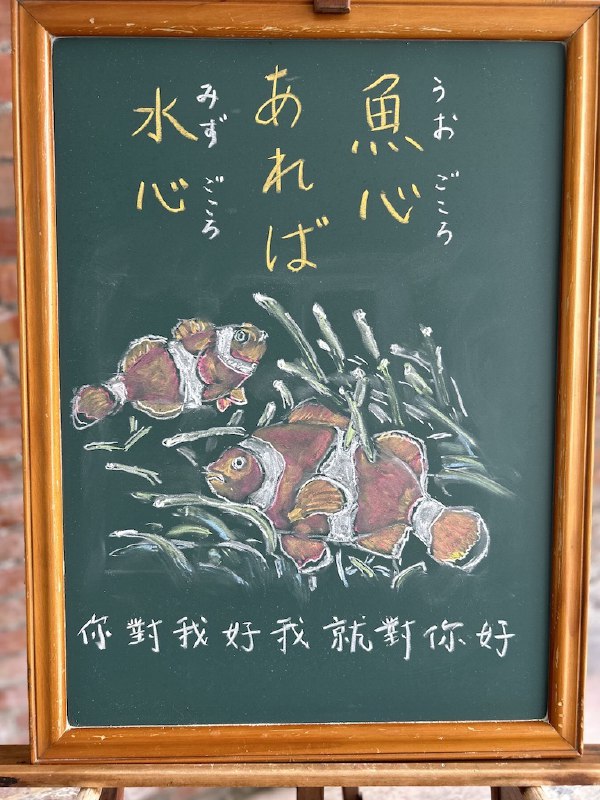 魚心
うおごころ
あれば
水心
みずごころ
你對我好我就對你好